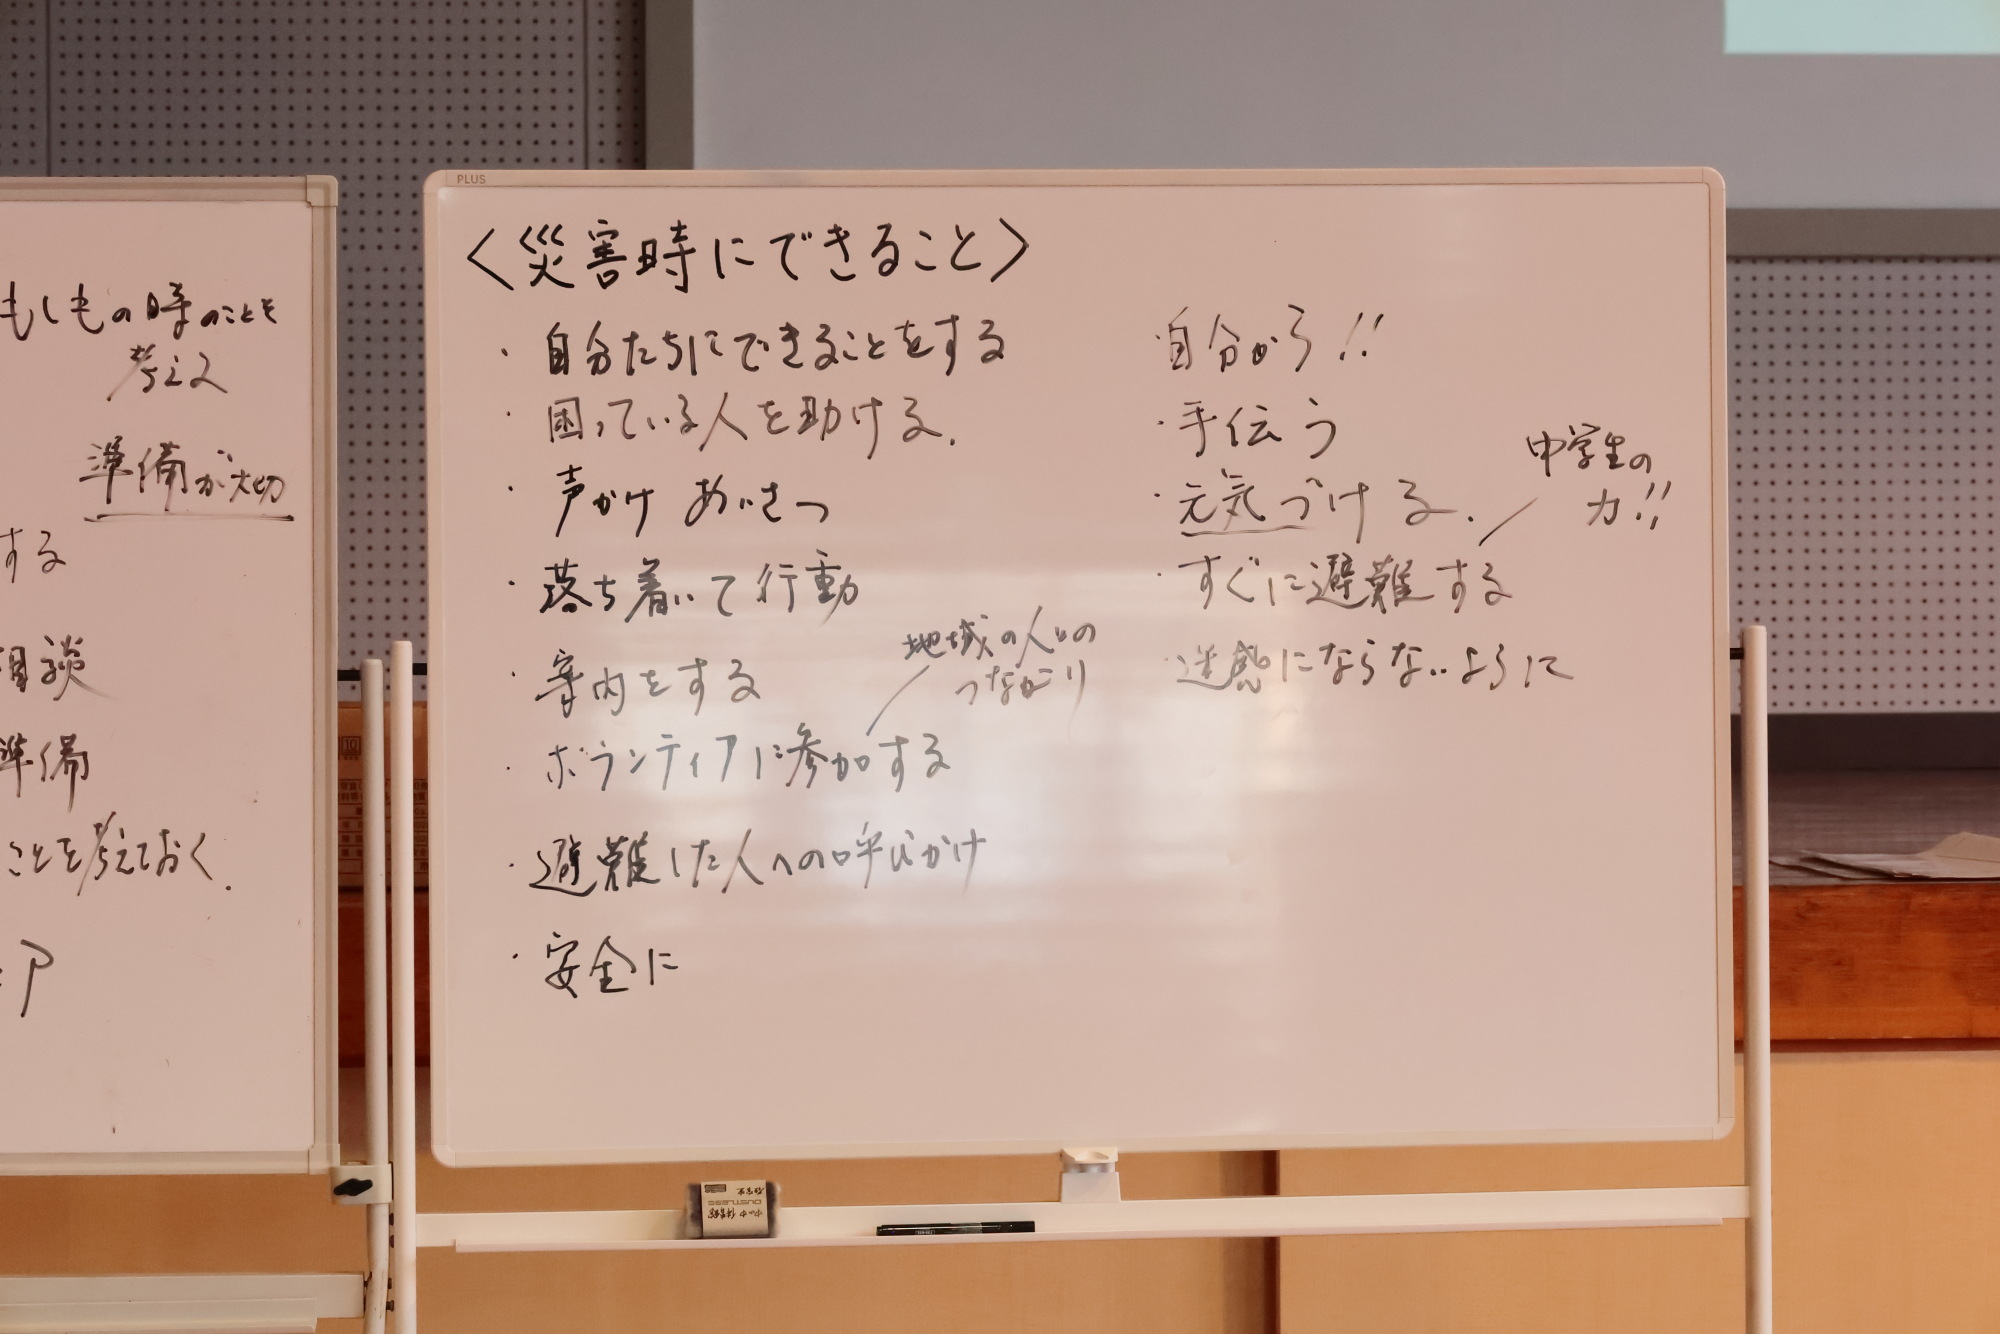 もしもの時のことを
考える
準備が大切
する
相談
準備
ことを考えておく.
PLUS
〈災害時にできること〉
・自分たちにできることをする
・困っている人を助ける.
・声かけ あいさつ
・落ち着いて行動
・案内をする
地域の人との
つながり
・ボランティアに参加する
・避難した人への呼びかけ
・安全に
・自分から!!
・手伝う
・元気づける.
中学生の
力!!
・すぐに避難する
・迷惑にならないように